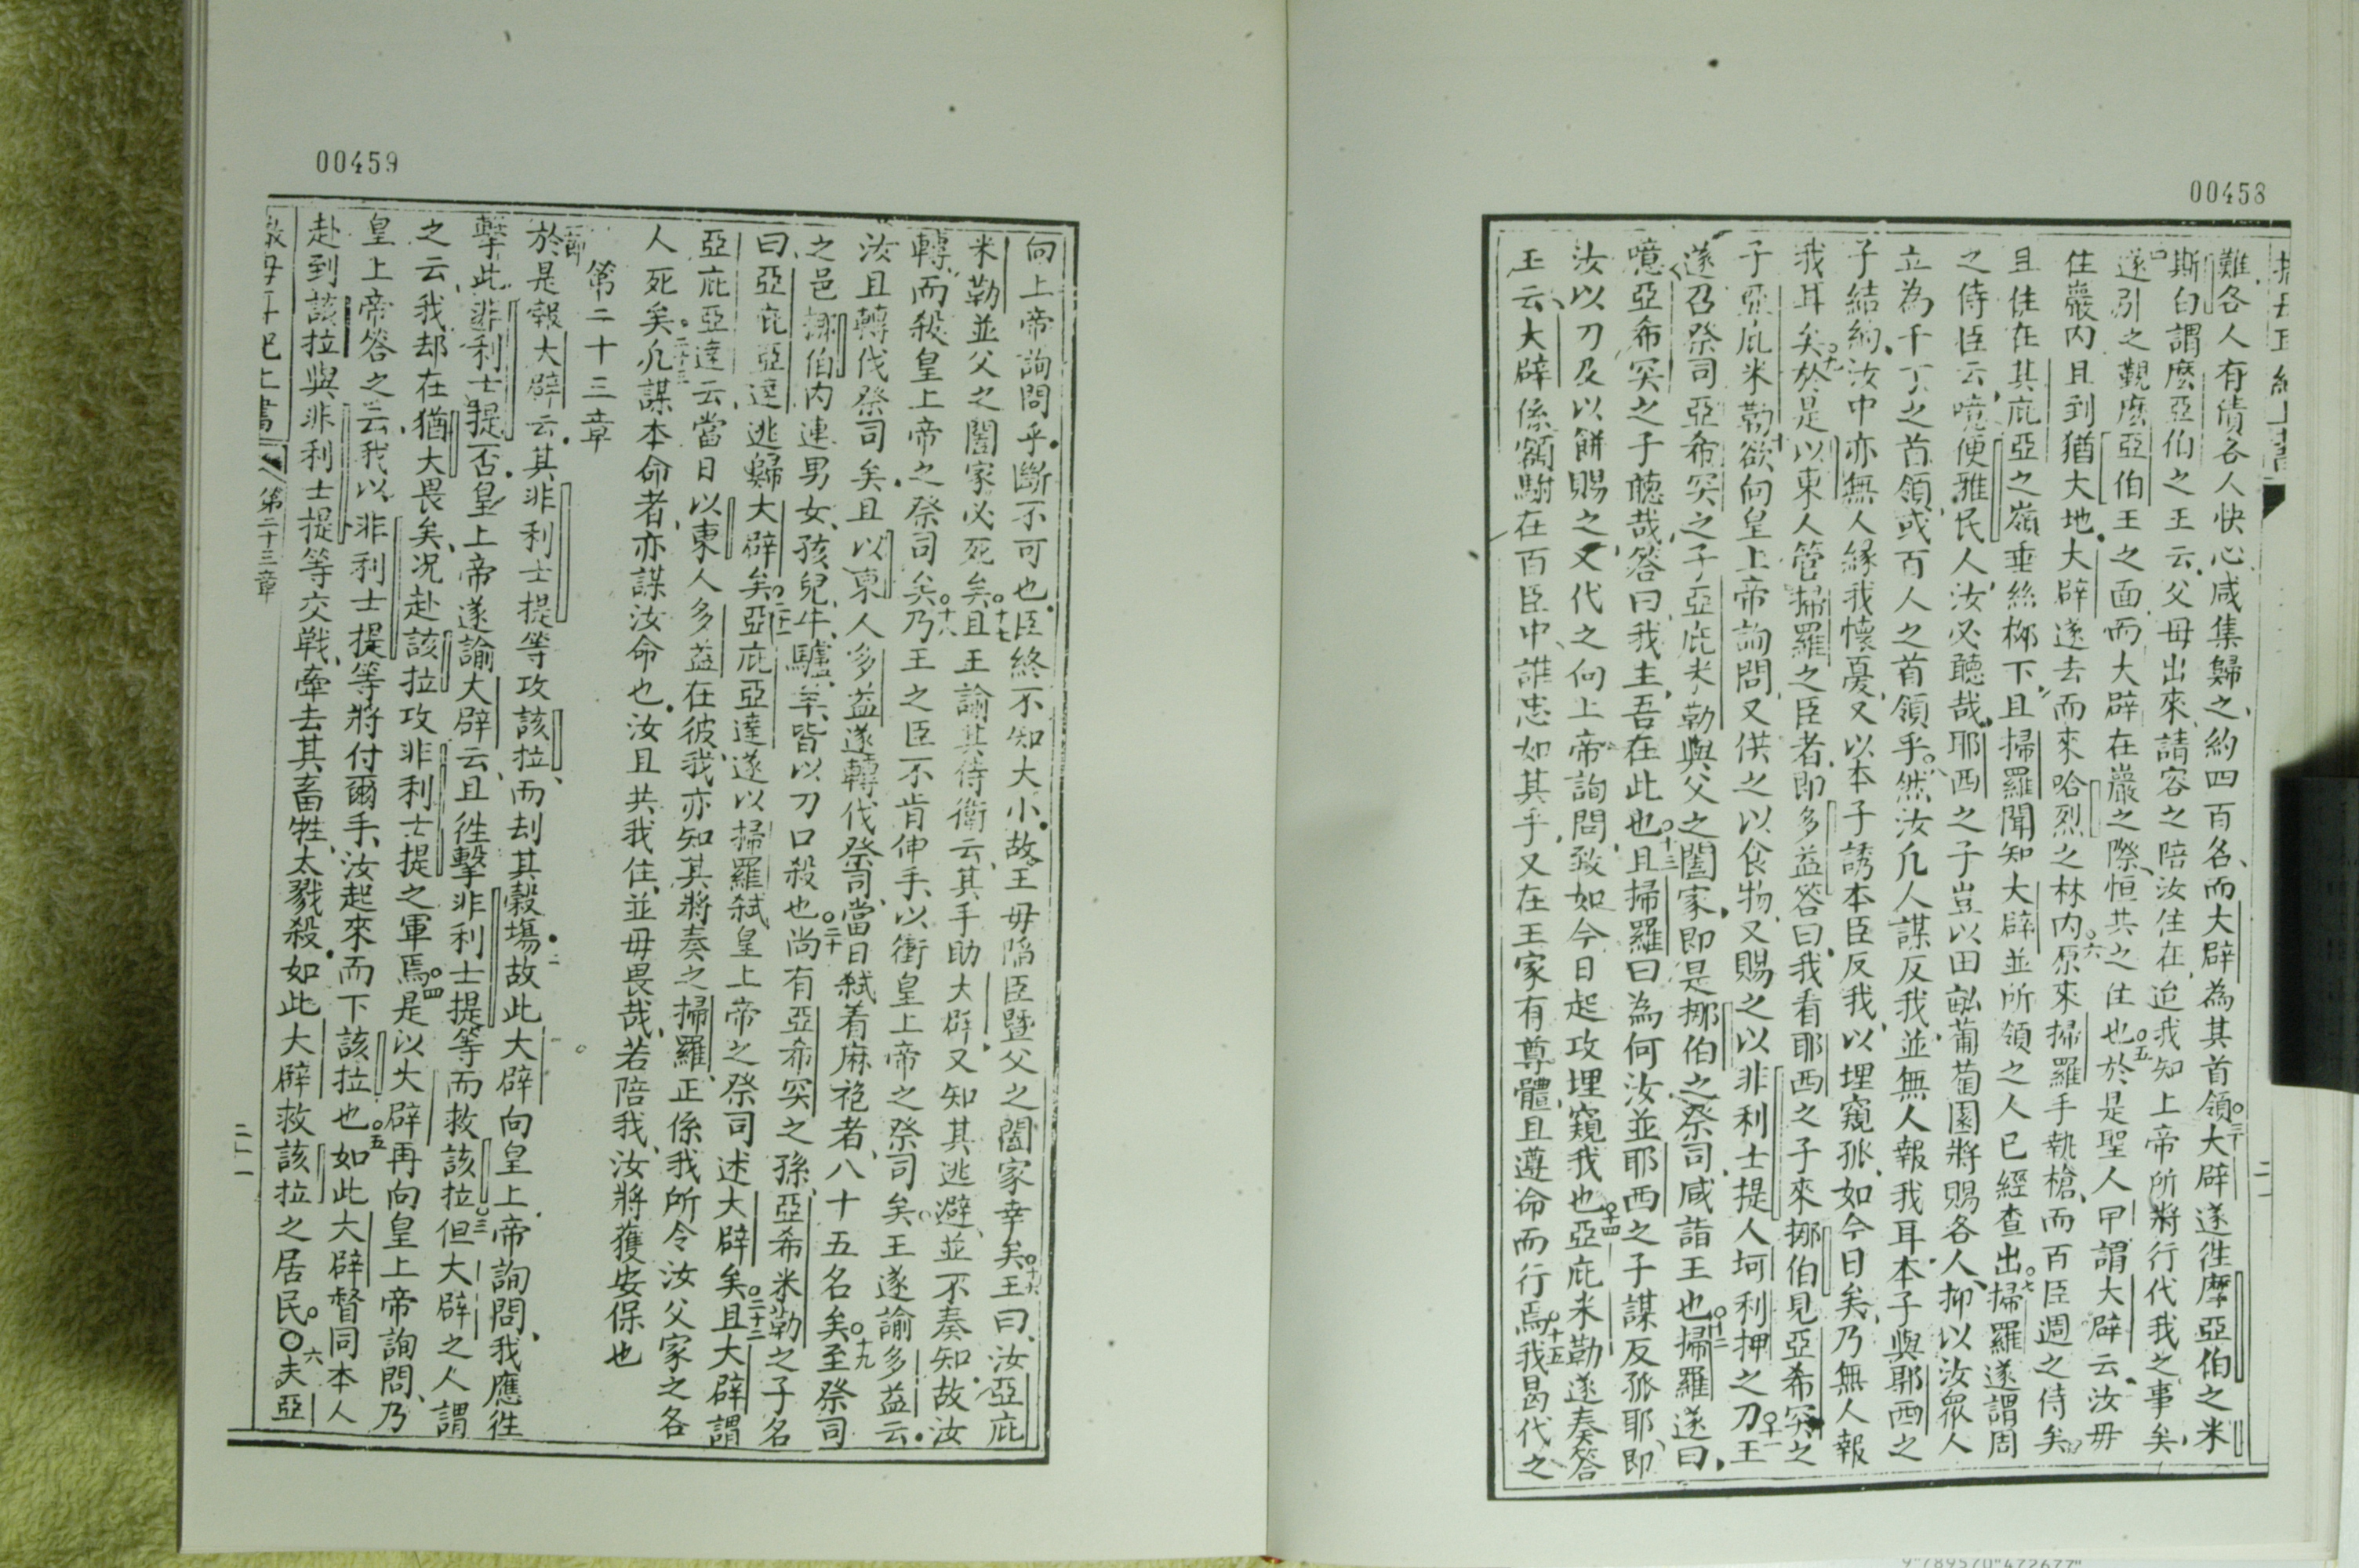 00458
難各人有債各人快心咸集歸之、約四百名、而大辟為其首領。三大辟遂徃摩亞伯之米
斯白謂麽亞伯之王云、父母出來、請容之陪汝住在、迨我知上帝所將行代我之事矣、
四遂引之覲麽亞伯王之面而大辟在巖之際、恒共之住也。五於是聖人曱謂大辟云、汝毋
住巖內且到猶大地、大辟遂去而來哈烈之林內。六原來掃羅手執槍、而百臣週之侍矣
且住在其庇亞之嶺垂絲栁下、且掃羅聞知大辟並所領之人已經查出。七掃羅遂謂周
之侍臣云、噫便雅民人、汝必聽哉、耶西之子豈以田畆葡萄園將賜各人、抑以汝眾人
立為千丁之首領、或百人之首領乎。八然汝凢人謀反我、並無人報我耳、本子與耶西之
子結約、汝中亦無人緣我懷憂、又以本子誘本臣反我、以埋窺孤、如今日矣、乃無人報
我耳矣。九於是以東人管掃羅之臣者、即多益答曰、我看耶西之子來挪伯見亞希突之
子亞庇米勒。十欲向皇上帝詢問、又供之以食物、又賜之以非利士提人坷利押之刀。十一王
遂召祭司亞希突之子亞庇米勒與父之闔家、即是挪伯之祭司、咸詣王也。十二掃羅遂曰、
噫亞希突之子聽哉、答曰、我主、吾在此也。十三且掃羅曰為何汝並耶西之子謀反孤耶、即
汝以刀及以餅賜之、又代之向上帝詢問、致如今日起攻埋窺我也。十四亞庇米勒遂奏答
王云、大辟係額駙在百臣中、誰忠如其乎、又在王家有尊體、且遵命而行焉。十五我曷代之
二十一
00459
向上帝詢問乎、斷不可也、臣終不知大小、故王毋陷臣暨父之闔家幸矣。十六王曰、汝亞庇
米勒並父之闔家必死矣。十七且王諭其侍衛云、其手助大辟、又知其逃避、並不奏知、故汝
轉、而殺皇上帝之祭司矣。十八乃王之臣不肯伸手、以衝皇上帝之祭司矣、王遂諭多益云、
汝且轉伐祭司矣、且以東人多益遂轉伐祭司、當日弑着麻袍者、八十五名矣。十九至祭司
之邑挪伯內連男女、孩兒、牛、驢、羊、皆以刀口殺也。二十尚有亞希突之孫、亞希米勒之子名
曰、亞庇亞達、逃歸大辟矣。二十一亞庇亞達遂以掃羅弑皇上帝之祭司述大辟矣。二十二且大辟謂
亞庇亞達云、當日以東人多益在彼、我亦知其將奏之掃羅、正係我所令汝父家之各
人死矣。二十三凢謀本命者、亦謀汝命也、汝且共我住、並毋畏哉、若陪我、汝將獲安保也
第二十三章
一節於是報大辟云、其非利士提等攻該拉、而刦其穀塲、二故此大辟向皇上帝詢問、我應徃
擊此非利士提否、皇上帝遂諭大辟云、且徃擊非利士提等而救該拉。三但大辟之人謂
之云、我却在猶大畏矣、况赴該拉攻非利士提之軍焉。四是以大辟再向皇上帝詢問、乃
皇上帝答之云、我以非利士提等將付爾手、汝起來而下該拉也。五如此大辟督同本人
赴到該拉與非利士提等交戰、牽去其畜牲、太戮殺、如此大辟救該拉之居民。○六夫亞
撒母耳記上書 第二十三章 二十一